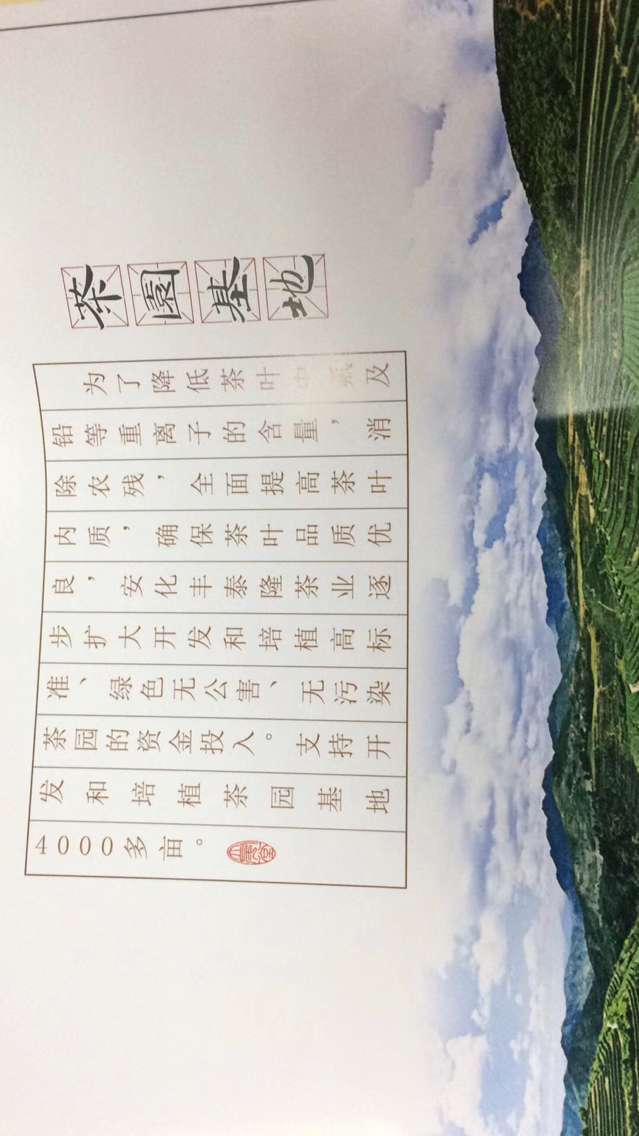 茶園基地
为了降低茶叶中 及
铅等重离子的含量，消
除农残，全面提高茶叶
内质，确保茶叶品质优
良，安化丰泰隆茶业逐
步扩大开发和培植高标
准、绿色无公害、无污染
茶园的资金投入。支持开
发和培植茶园基地
4000多亩。